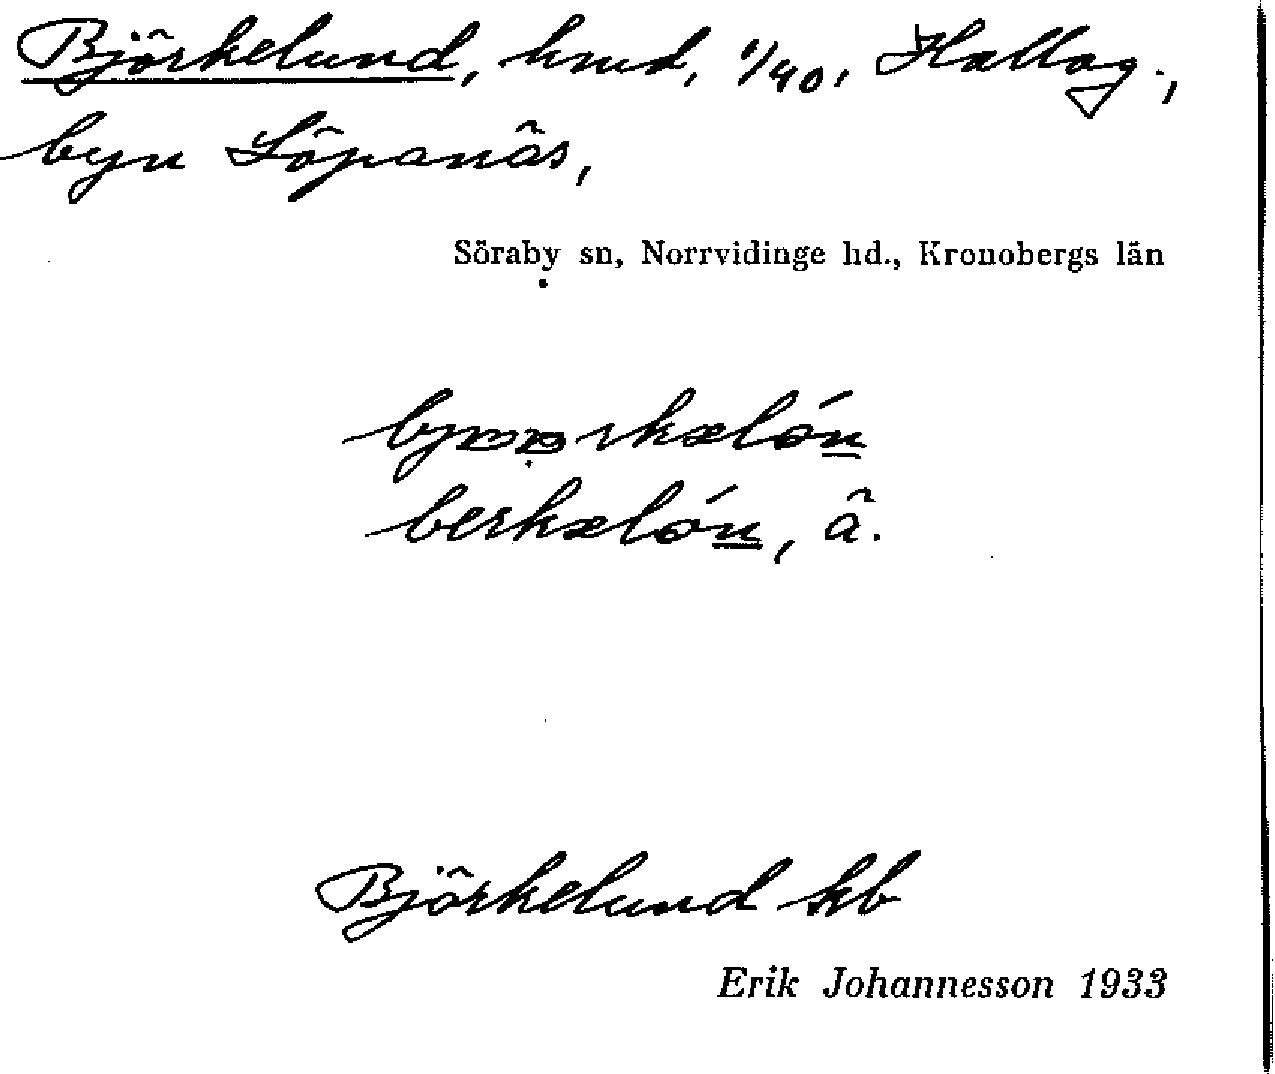 Björkelund, hmd, 1/40, Hallag.,
byn Löpanäs,
Söraby sn, Norrvidinge hd., Kronobergs län
berkælón, ä.
Björkelund kb
Erik Johannesson 1933